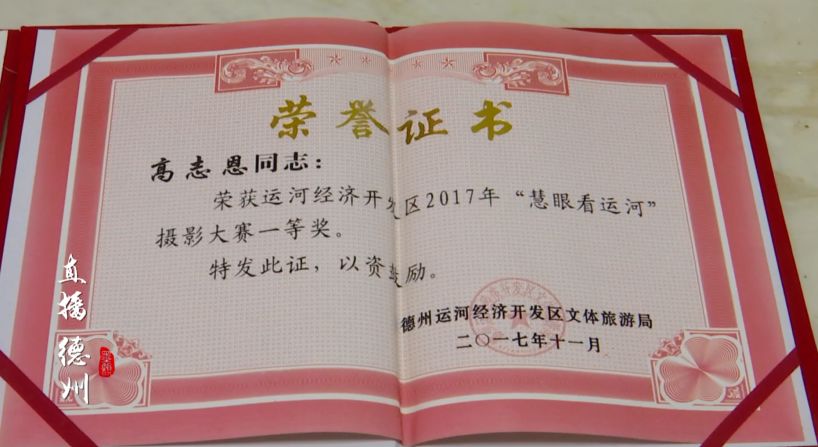 荣誉证书
高志恩同志：
荣获运河经济开发区2017年“慧眼看运河”
摄影大赛一等奖。
特发此证，以资鼓励。
德州运河经济开发区文体旅游局
二〇一七年十一月
直播德州